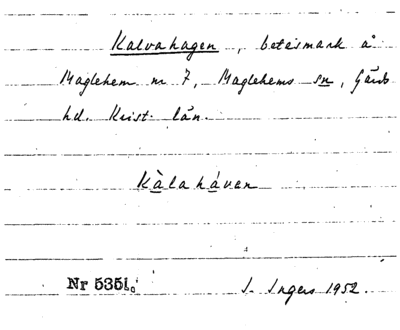 Kalvahagen, betesmark å
Maglehem nr 7, Maglehems sn, Gärds
hd. Krist. län.
Kàlahá̀ven
Nr 5351.
I. Ingers 1952.